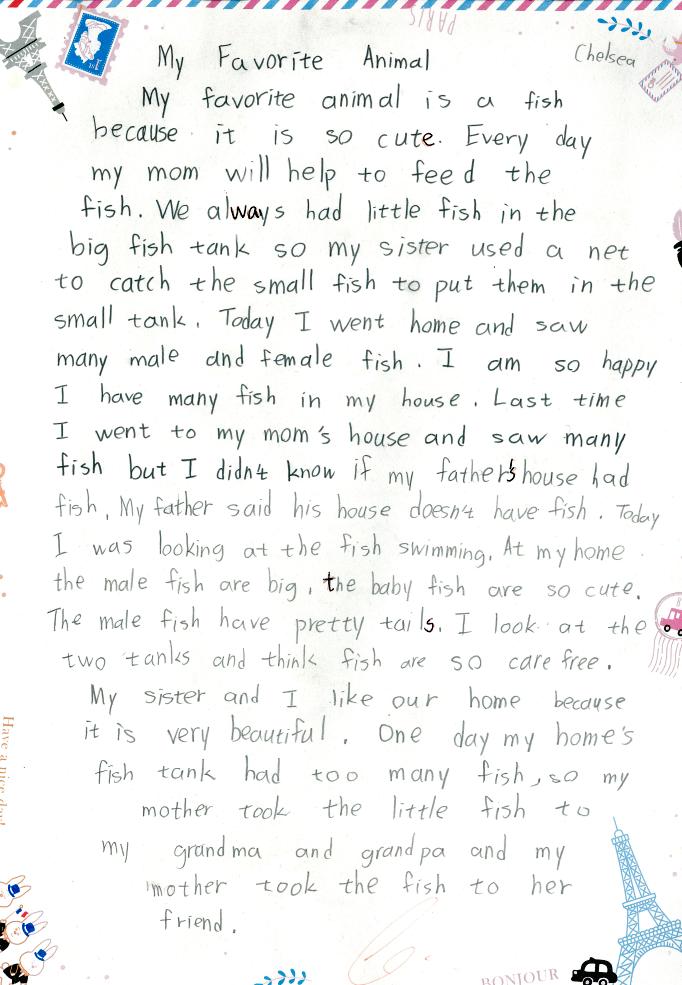 PARIS
My Favorite Animal
Chelsea
My favorite animal is a fish
because it is so cute. Every day
my mom will help to feed the
fish. We always had little fish in the
big fish tank so my sister used a net
to catch the small fish to put them in the
small tank. Today I went home and saw
many male and female fish. I am so happy
I have many fish in my house. Last time
I went to my mom's house and saw many
fish but I didn't know if my father's house had
fish. My father said his house doesn't have fish. Today
I was looking at the fish swimming. At my home
the male fish are big, the baby fish are so cute.
The male fish have pretty tails. I look at the
two tanks and think fish are so care free.
My sister and I like our home because
it is very beautiful. One day my home's
fish tank had too many fish, so my
mother took the little fish to
my grandma and grandpa and my
mother took the fish to her
friend.
Have a nice day!
BONJOUR